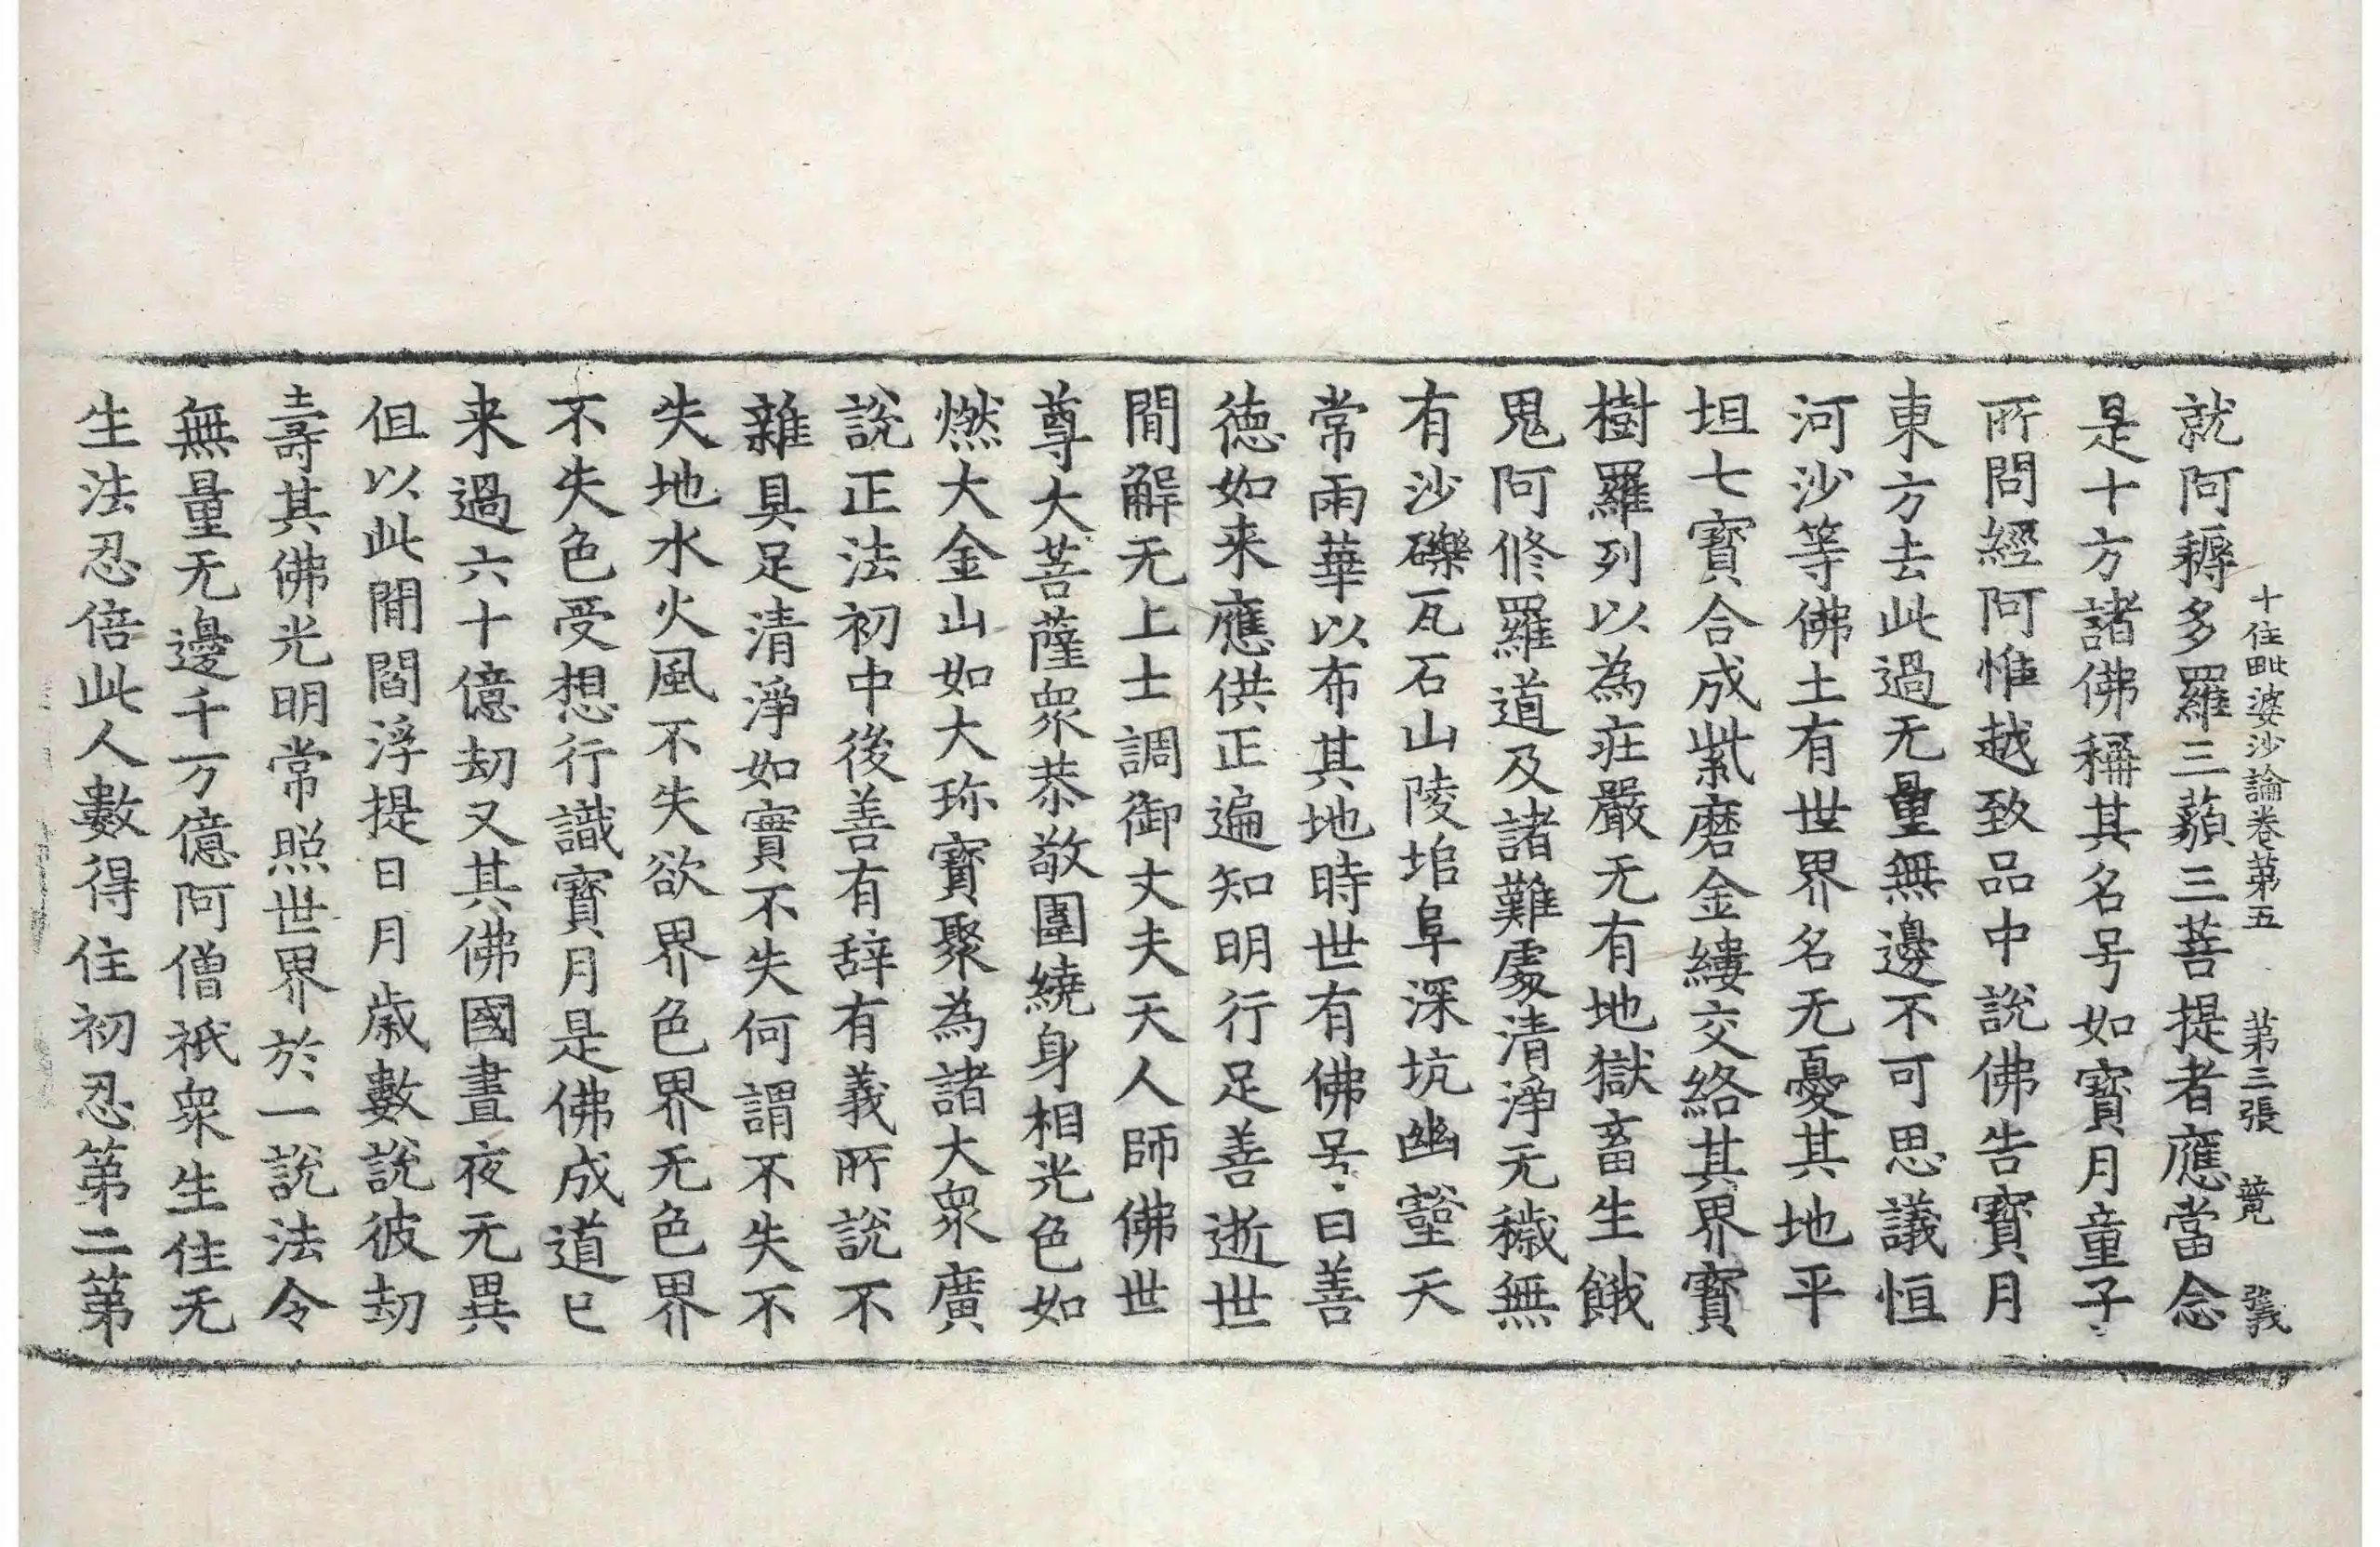 十住毗婆沙論卷第五　第三張　薨　義
就阿耨多羅三藐三菩提者應當念
是十方諸佛稱其名号如寶月童子
所問經阿惟越致品中說佛告寶月
東方去此過无量無邊不可思議恒
河沙等佛土有世界名无憂其地平
坦七寶合成紫磨金縷交絡其界寶
樹羅列以為莊嚴无有地獄畜生餓
鬼阿修羅道及諸難處清淨无穢無
有沙礫瓦石山陵塠阜深坑幽壑天
常雨華以布其地時世有佛号曰善
德如来應供正遍知明行足善逝世
間解无上士調御丈夫天人師佛世
尊大菩薩衆恭敬圍繞身相光色如
燃大金山如大珎寶聚為諸大衆廣
說正法初中後善有辞有義所說不
雜具足清淨如實不失何謂不失不
失地水火風不失欲界色界无色界
不失色受想行識寶月是佛成道已
来過六十億劫又其佛國晝夜无異
但以此間閻浮提日月歲數說彼劫
壽其佛光明常照世界於一說法令
無量无邊千万億阿僧祇衆生住无
生法忍倍此人數得住初忍第二第